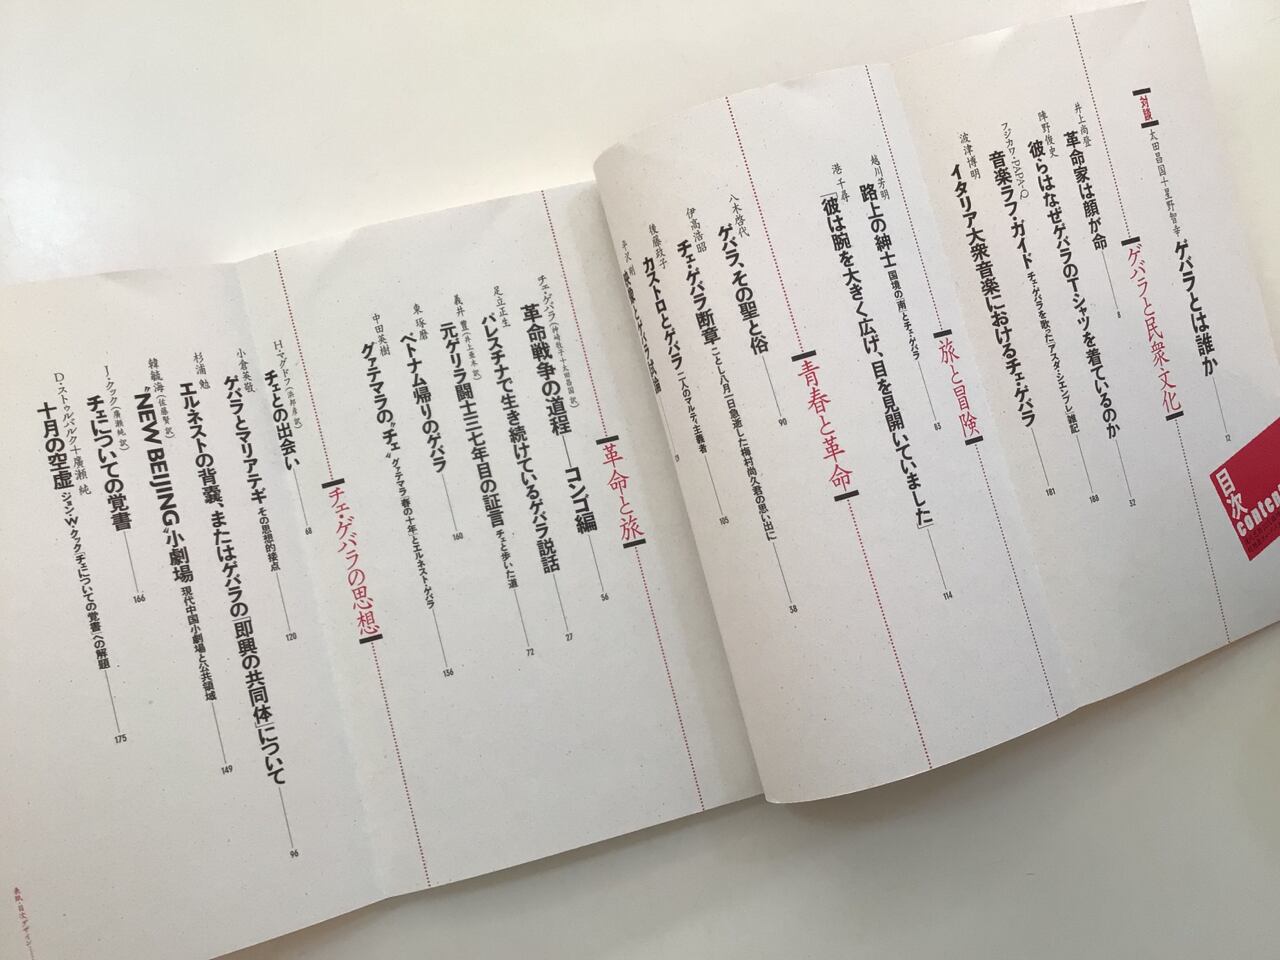 目次
【対談】
太田昌国＋星野智幸 ゲバラとは誰か 12
【ゲバラと民衆文化】
井上尚登 革命家は顔が命 8
陣野俊史 彼らはなぜゲバラのTシャツを着ているのか 52
フジカワ・PAPA-Q 音楽ラフ・ガイド チェ・ゲバラを歌った「アスタ・シエンプレ」雑記 188
波津博明 イタリア大衆音楽におけるチェ・ゲバラ 181
【旅と冒険】
越川芳明 路上の紳士 国境の「南」とチェ・ゲバラ 63
港 千尋 「彼は腕を大きく広げ、目を見開いていました」 114
【青春と革命】
八木啓代 ゲバラ、その聖と俗 90
伊高浩昭 チェ・ゲバラ断章 ことし八月一日急逝した梅村尚久君の思い出に 38
後藤政子 カストロとゲバラ 二人のマルティ主義者 105
【革命と旅】
チェ・ゲバラ（神崎牧子＋太田昌国 訳） 革命戦争の道程――コンゴ編 56
足立正生 パレスチナで生き続けているゲバラ説話 27
義井 豊 元ゲリラ闘士三七年目の証言 チェと歩いた道 72
東 琢磨 ベトナム帰りのゲバラ 160
中田英樹 グァテマラの〝チェ〟 グァテマラ「春の十年」とエルネスト・ゲバラ 136
【チェ・ゲバラの思想】
チェとの出会い 68
小倉英敬 ゲバラとマリアテギ その思想的接点 120
杉浦 勉 エルネストの背嚢、またはゲバラの「即興の共同体」について 96
韓毓海（佐藤賢 訳） 〝NEW BEIJING〟小劇場 現代中国小劇場と公共領域 149
J・クック（廣瀬純 訳） チェについての覚書 166
D・ストゥルバルク＋廣瀬 純 十月の空虚 ジョン・W・クック「チェについての覚書」への解題 175
表紙・目次デザイン